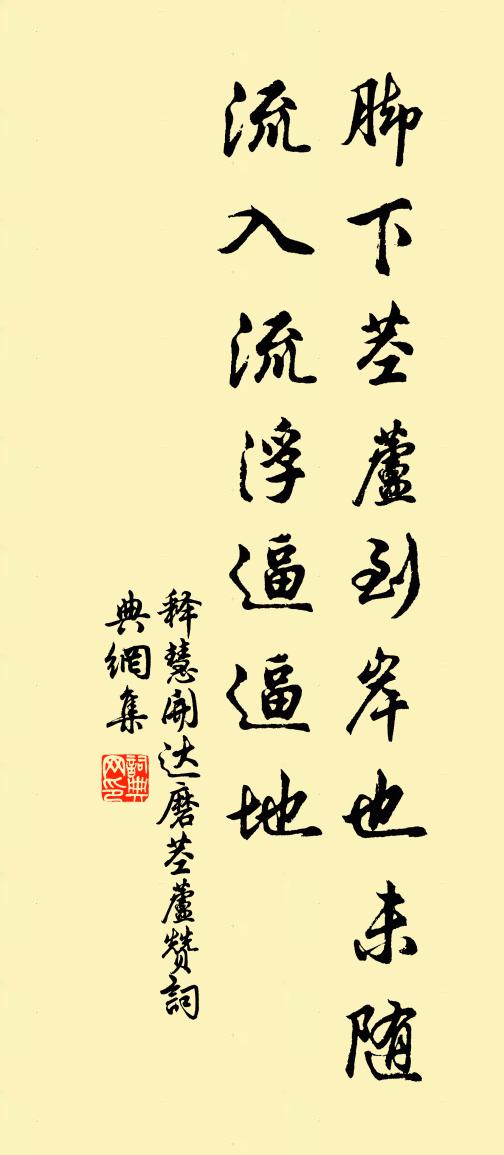 脚下茎蘆到岸也未随
流入流浮逼逼地
释慧開达磨茎蘆赞詞
典網集
詞典
网印